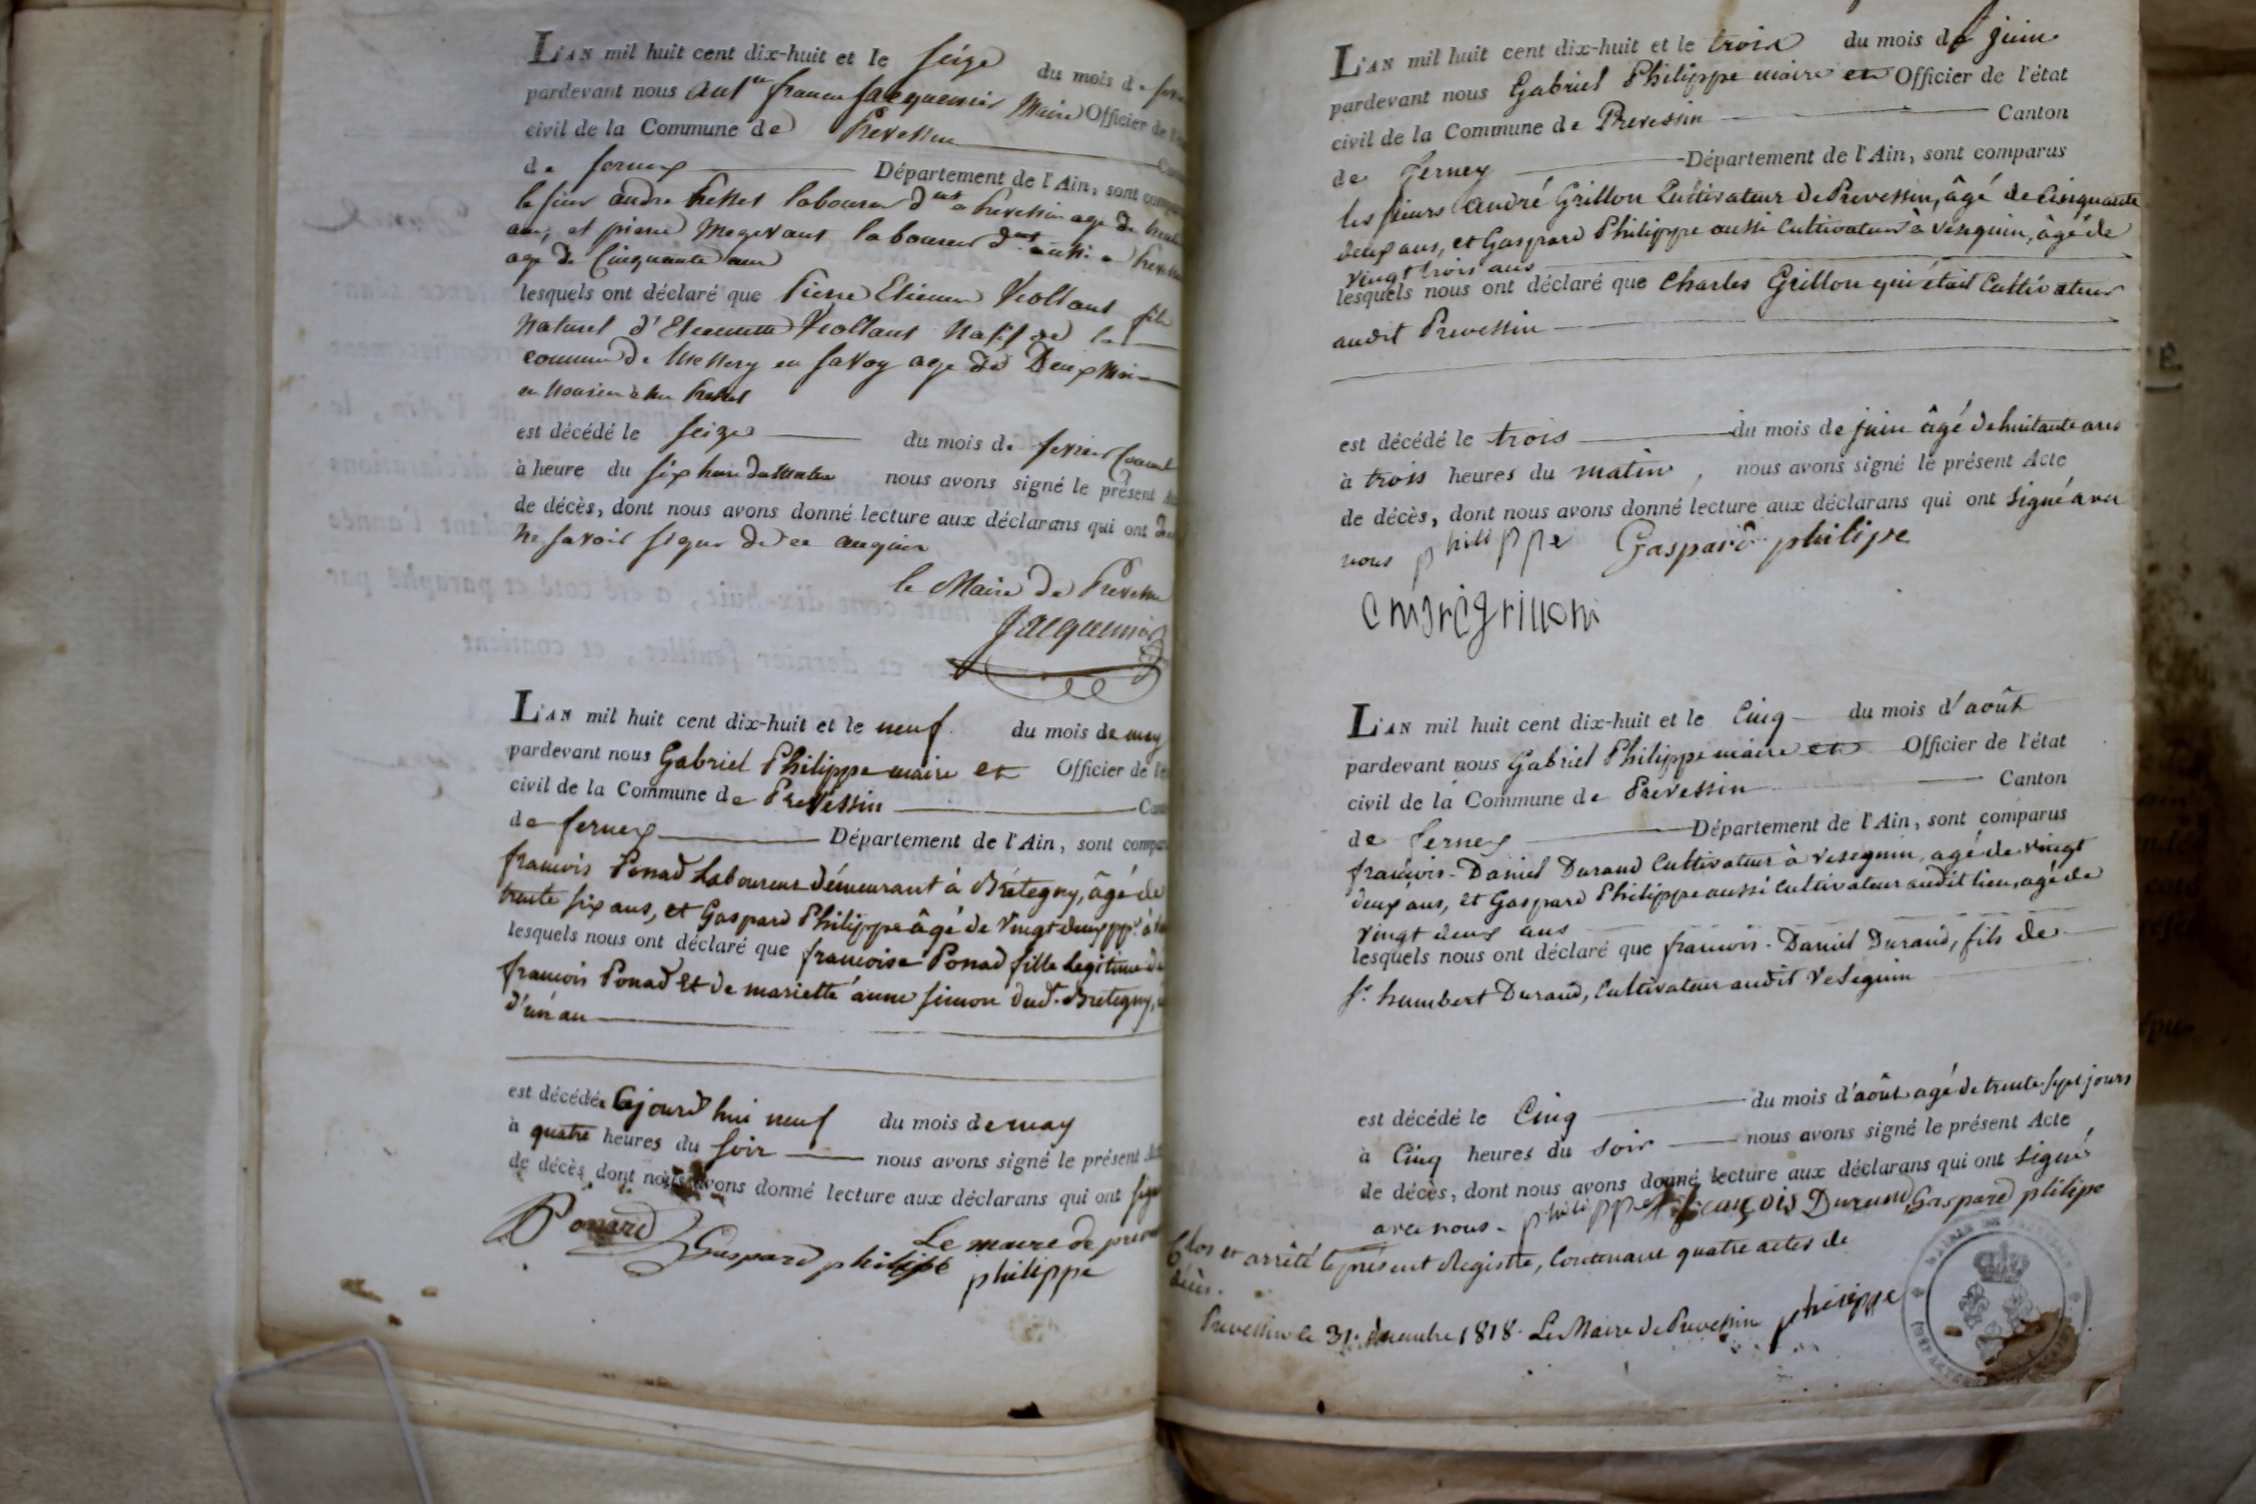 L'AN mil huit cent dix-huit et le seize du mois de
pardevant nous françois Jacquemier Maire Officier de
civil de la Commune de Prevessin
de ferney Département de l'Ain, sont
le sieur andre laboureur a Prevessin age de
ans, et pierre Megevant laboureur aussi a
age de Cinquante ans
lesquels ont déclaré que Pierre Etienne Viollant fils
naturel d'Etiennette Viollant Natif de la
commune de Messery en Savoy age de Deux Mois
en
est décédé le seize du mois de fevrier Courant
à heure du six heure du Matin nous avons signé le présent
de décès, dont nous avons donné lecture aux déclarans qui ont
ne savoir signer de ce
le Maire de Prevessin
Jacquemier
L'AN mil huit cent dix-huit et le neuf du mois de may
pardevant nous Gabriel Philippe maire et Officier de
civil de la Commune de Prevessin
de ferney Département de l'Ain, sont
francois Ponad Laboureur démeurant à Brétegny, âgé de
trente six ans, et Gaspard Philippe âgé de vingt deux
lesquels nous ont déclaré que francoise Ponad fille legitime de
francois Ponad et de mariette anne simon dud. Bretegny,
d'un an
est décédée cejourd'hui neuf du mois de may
à quatre heures du soir nous avons signé le présent
de décès dont nous avons donné lecture aux déclarans qui ont signé
Ponard Gaspard philipe Le maire de
philippe
L'AN mil huit cent dix-huit et le trois du mois de juin
pardevant nous Gabriel Philippe maire et Officier de l'état
civil de la Commune de Prevessin Canton
de Ferney Département de l'Ain, sont comparus
les sieurs André Grillon Cultivateur de Prevessin, âgé de cinquante
deux ans, et Gaspard Philippe aussi Cultivateur à Vesegnin, âgé de
vingt trois ans
lesquels nous ont déclaré que Charles Grillon qui était Cultivateur
audit Prevessin
est décédé le trois du mois de juin âgé de huitante ans
à trois heures du matin, nous avons signé le présent Acte
de décès, dont nous avons donné lecture aux déclarans qui ont signé avec
nous philippe Gaspard philipe
andregrillon
L'AN mil huit cent dix-huit et le Cinq du mois d'août
pardevant nous Gabriel Philippe maire et Officier de l'état
civil de la Commune de Prevessin Canton
de Ferney Département de l'Ain, sont comparus
françois-Daniel Durand Cultivateur à Vesegnin, agé de vingt
deux ans, et Gaspard Philippe aussi Cultivateur audit lieu, agé de
vingt deux ans
lesquels nous ont déclaré que francois-Daniel Durand, fils de
Sr. humbert Durand, Cultivateur audit Vesegnin
est décédé le Cinq du mois d'août agé de trente sept jours
à Cinq heures du soir nous avons signé le présent Acte
de décès, dont nous avons donné lecture aux déclarans qui ont signé
avec nous. philippe françois Durand, Gaspard philipe
Clos et arrêté le présent Registre, Contenant quatre actes de
décès.
Prevessin le 31. décembre 1818. Le Maire de Prevessin philippe